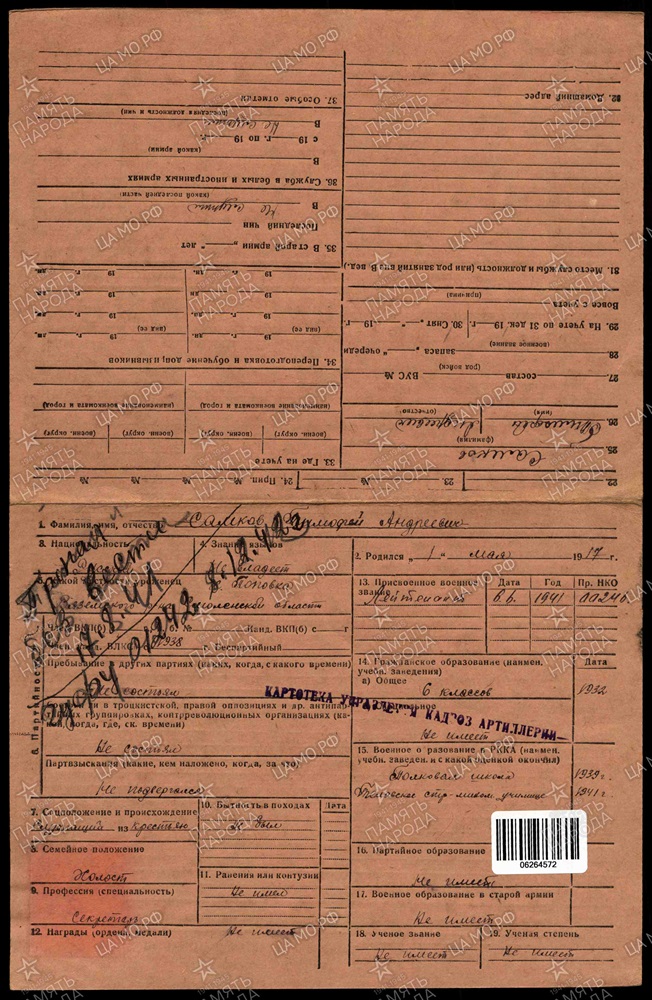 22.
23. №
24. Прип. № № №
25. Самков
(фамилия)
26. Тимофей Андреевич
(имя) (отчество)
27. состав ВУС №
(род войск)
28. запаса очереди
(военное звание)
29. На учете по 31 дек. 19 г. 30. Снят „ “ 19 г.
Вовсе с учета
(причина)
31. Место службы и должность (или род занятий вне В вед.)
32. Домашний адрес
33. Где на учете
(воен. округ) (воен. округ) (воен. округ) (воен. округ)
(наименование военкомата и город) (наименование военкомата и город)
34. Переподготовка и обучение
(вид сб) 19 г. (вид сб) 19 г.
35. В старой армии „ “ лет
Последний чин
В Не служил
(какой последней части)
36. Служба в белых и иностранных армиях
В
(какой армии)
с 19 г. по 19 г.
В Не служил
(последняя должность и чин)
37. Особые отметки
1. Фамилия, имя, отчество Самков Тимофей Андреевич
2. Родился „1“ мая 1917 г.
3. Национальность
4. Знание языков
Не владеет
Поповка
Смоленской области
Пропал
без вести
17.8.41
01242 8.12.42г
Канд. ВКП(б) с г
1938
Беспартийный
6. Партийность
Пребывание в других партиях (каких, когда, с какого времени)
Не состоял
и в троцкистской, правой оппозициях и др. антипар-
группировках, контрреволюционных организациях
когда, где, ск. времени)
Не состоял
Партвзыскания какие, кем наложено, когда, за что
Не подвергался
7. Соцположение и происхождение
Служащий из крестьян
8. Семейное положение
Холост
9. Профессия (специальность)
Секретарь
10. Бытность в походах Дата
Не был
11. Ранения или контузии
Не имел
12. Награды (ордена, медали) Не имеет
13. Присвоенное военное звание Дата Год Пр. НКО
Лейтенант 1941 0024б.
14. Гражданское образование (наимен. учебн. заведения) Дата
а) Общее
6 классов 1932
Не имеет
КАРТОТЕКА УПРАВЛЕНИЯ КАДРОВ АРТИЛЛЕРИИ
15. Военное образование в РККА (наимен.
учебн. заведен. и с какой оценкой окончил)
Полковая школа 1939г.
училище 1941г
16. Партийное образование
Не имеет
17. Военное образование в старой армии
Не имеет
18. Ученое звание 19. Ученая степень
Не имеет Не имеет
06264572
ЦА МО РФ
ПАМЯТЬ НАРОДА